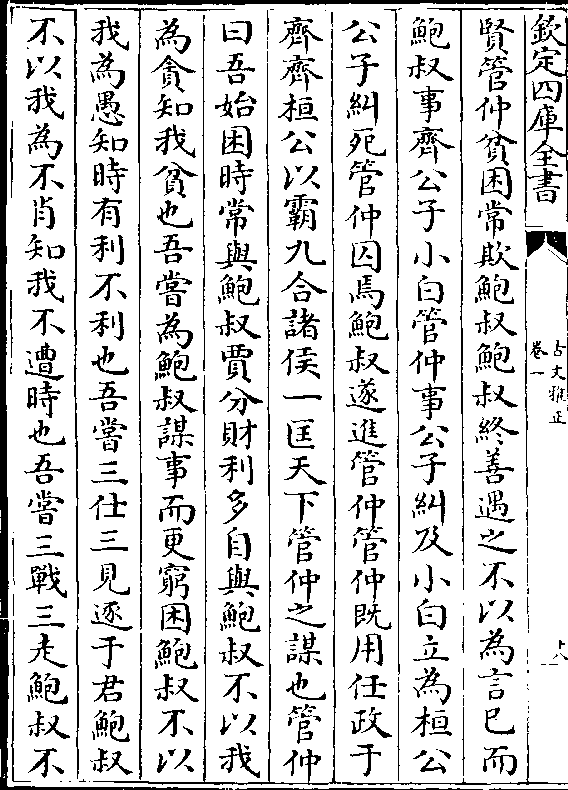 欽定四庫全書
古文雅正
卷一
賢管仲貧困常欺鮑叔鮑叔終善遇之不以為言已而
鮑叔事齊公子小白管仲事公子糾及小白立為桓公
公子糾死管仲囚焉鮑叔遂進管仲管仲既用任政于
齊齊桓公以霸九合諸侯一匡天下管仲之謀也管仲
曰吾始困時常與鮑叔賈分財利多自與鮑叔不以我
為貪知我貧也吾嘗為鮑叔謀事而更窮困鮑叔不以
我為愚知時有利不利也吾嘗三仕三見逐于君鮑叔
不以我為不肖知我不遭時也吾嘗三戰三走鮑叔不